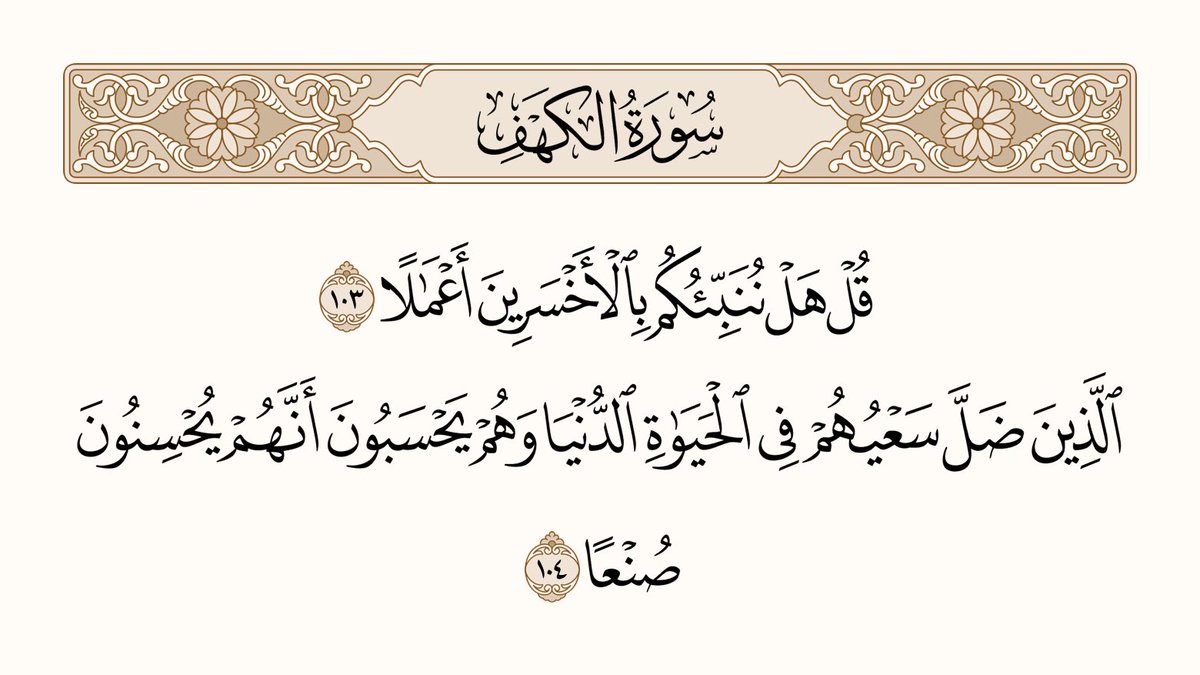 سُورَةُ الكَهۡفِ
قُلۡ هَلۡ نُنَبِّئُكُم بِٱلۡأَخۡسَرِينَ أَعۡمَٰلًا ١٠٣
ٱلَّذِينَ ضَلَّ سَعۡيُهُمۡ فِي ٱلۡحَيَوٰةِ ٱلدُّنۡيَا وَهُمۡ يَحۡسَبُونَ أَنَّهُمۡ يُحۡسِنُونَ
صُنۡعًا ١٠٤